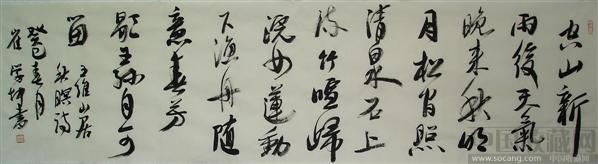 空山新
雨後天氣
晚来秋明
月松间照
清泉石上
流竹喧歸
浣女蓮動
下漁舟随
意春芳
歇王孙自可
留
王维山居
秋暝詩
癸巳春月
崔学坤書
www.socang.com